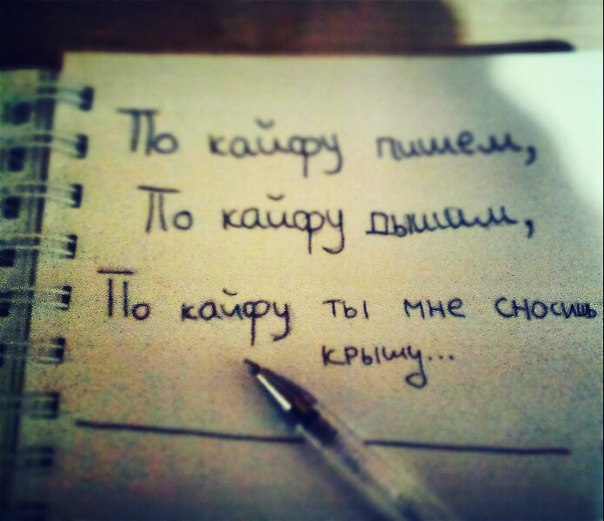 По кайфу пишем,
По кайфу дышим,
По кайфу ты мне сносишь
крышу...